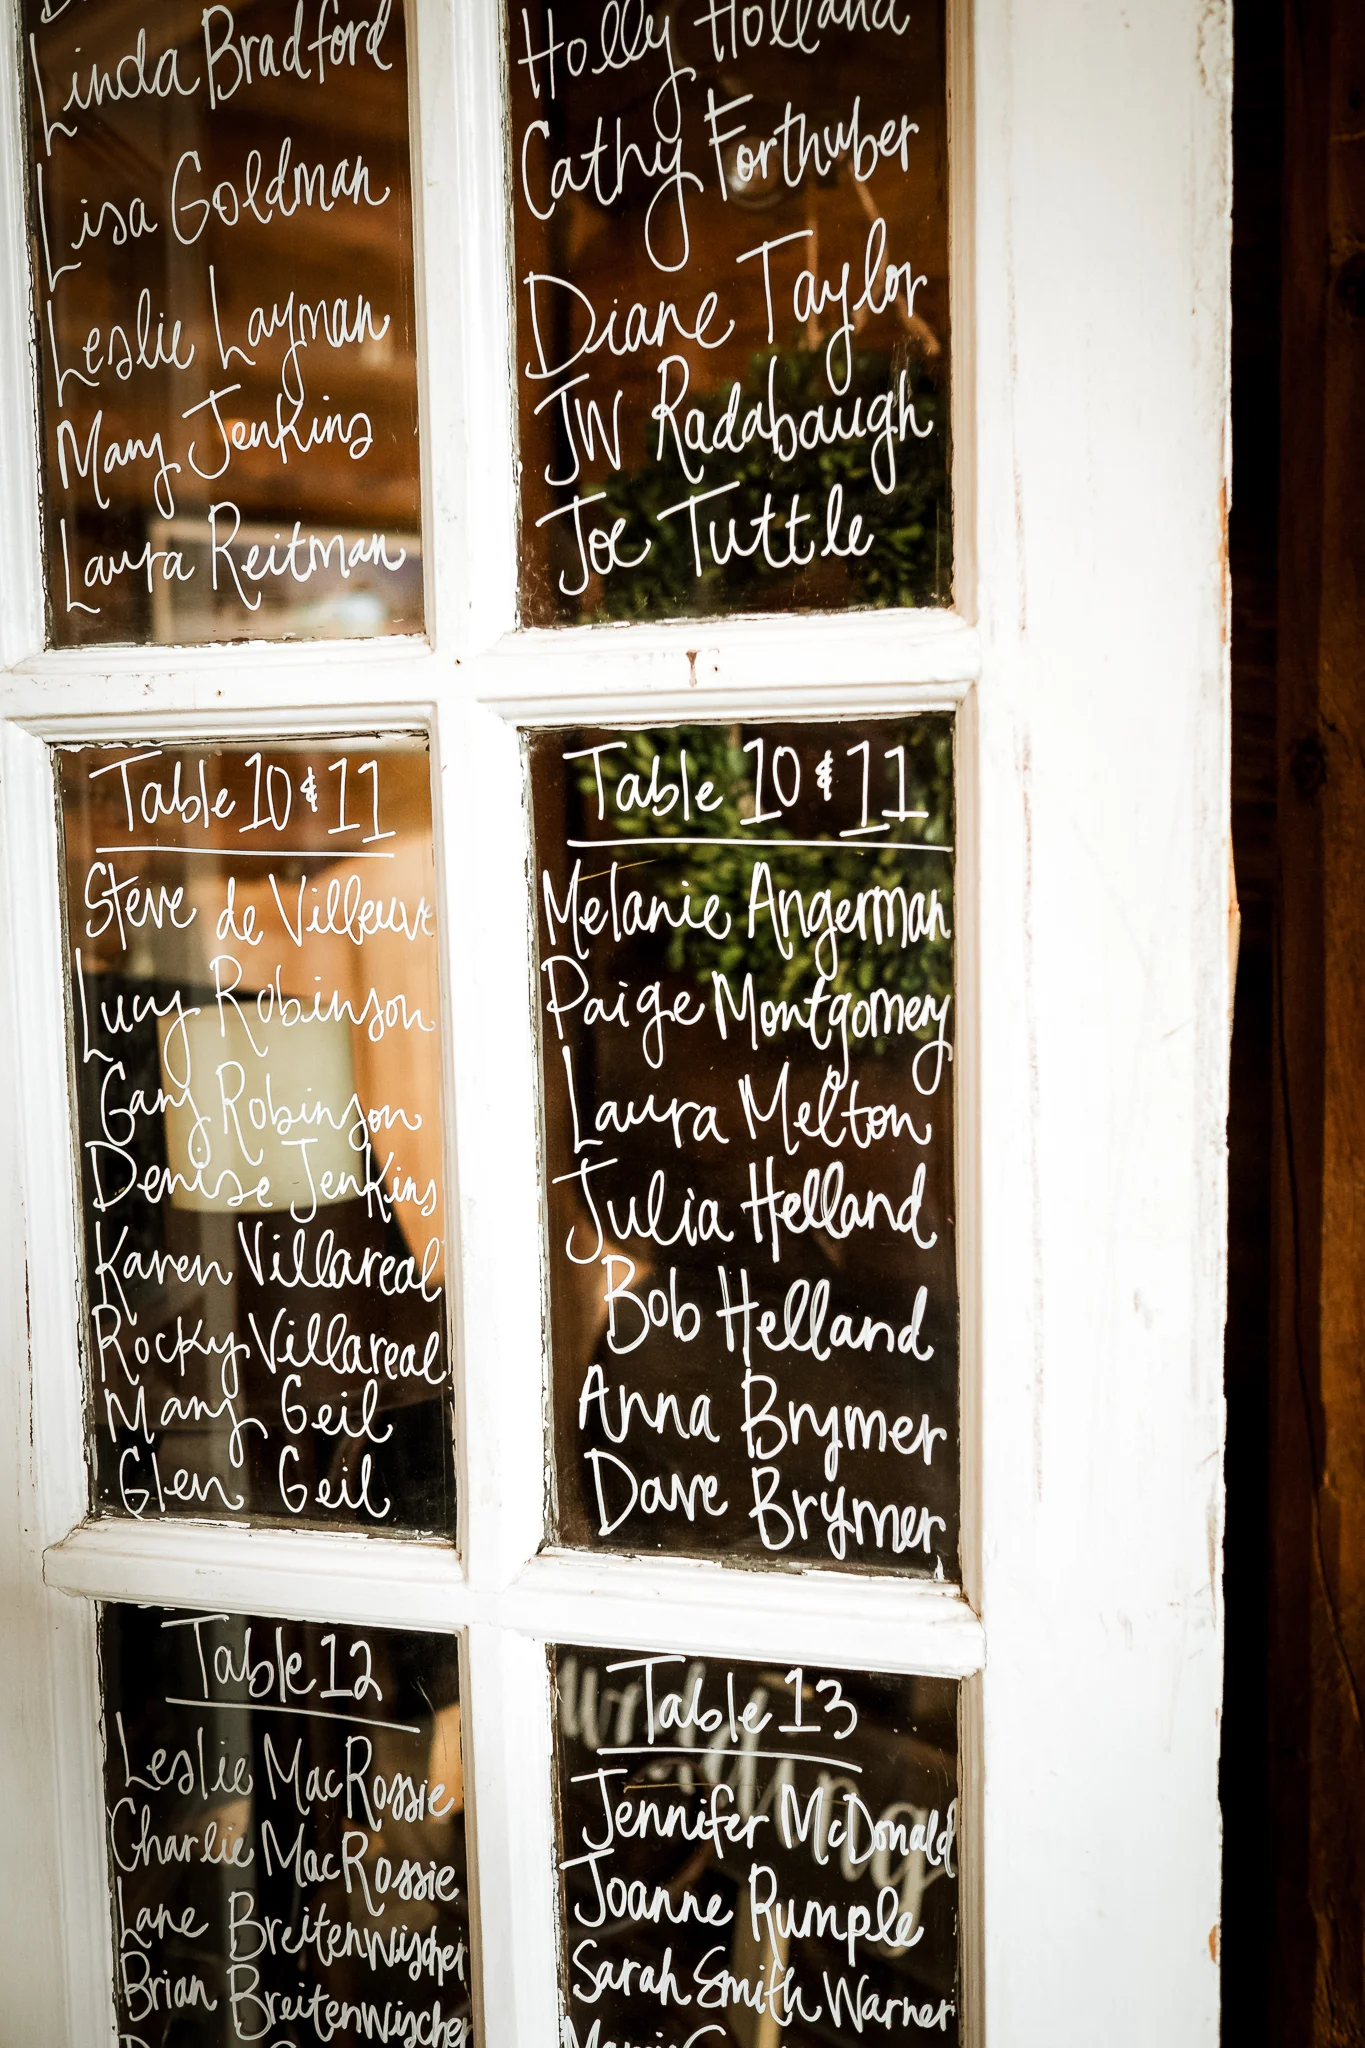 Linda Bradford
Lisa Goldman
Leslie Layman
Mary Jenkins
Laura Reitman
Holly Holland
Cathy Forthuber
Diane Taylor
JW Radabaugh
Joe Tuttle
Table 10 & 11
Steve de Villeuve
Lucy Robinson
Gary Robinson
Denise Jenkins
Karen Villareal
Rocky Villareal
Mary Geil
Glen Geil
Table 10 & 11
Melanie Angerman
Paige Montgomery
Laura Melton
Julia Helland
Bob Helland
Anna Brymer
Dave Brymer
Table 12
Leslie MacRossie
Charlie MacRossie
Lane Breitenwischer
Brian Breitenwischer
Table 13
Jennifer McDonald
Joanne Rumple
Sarah Smith Warner